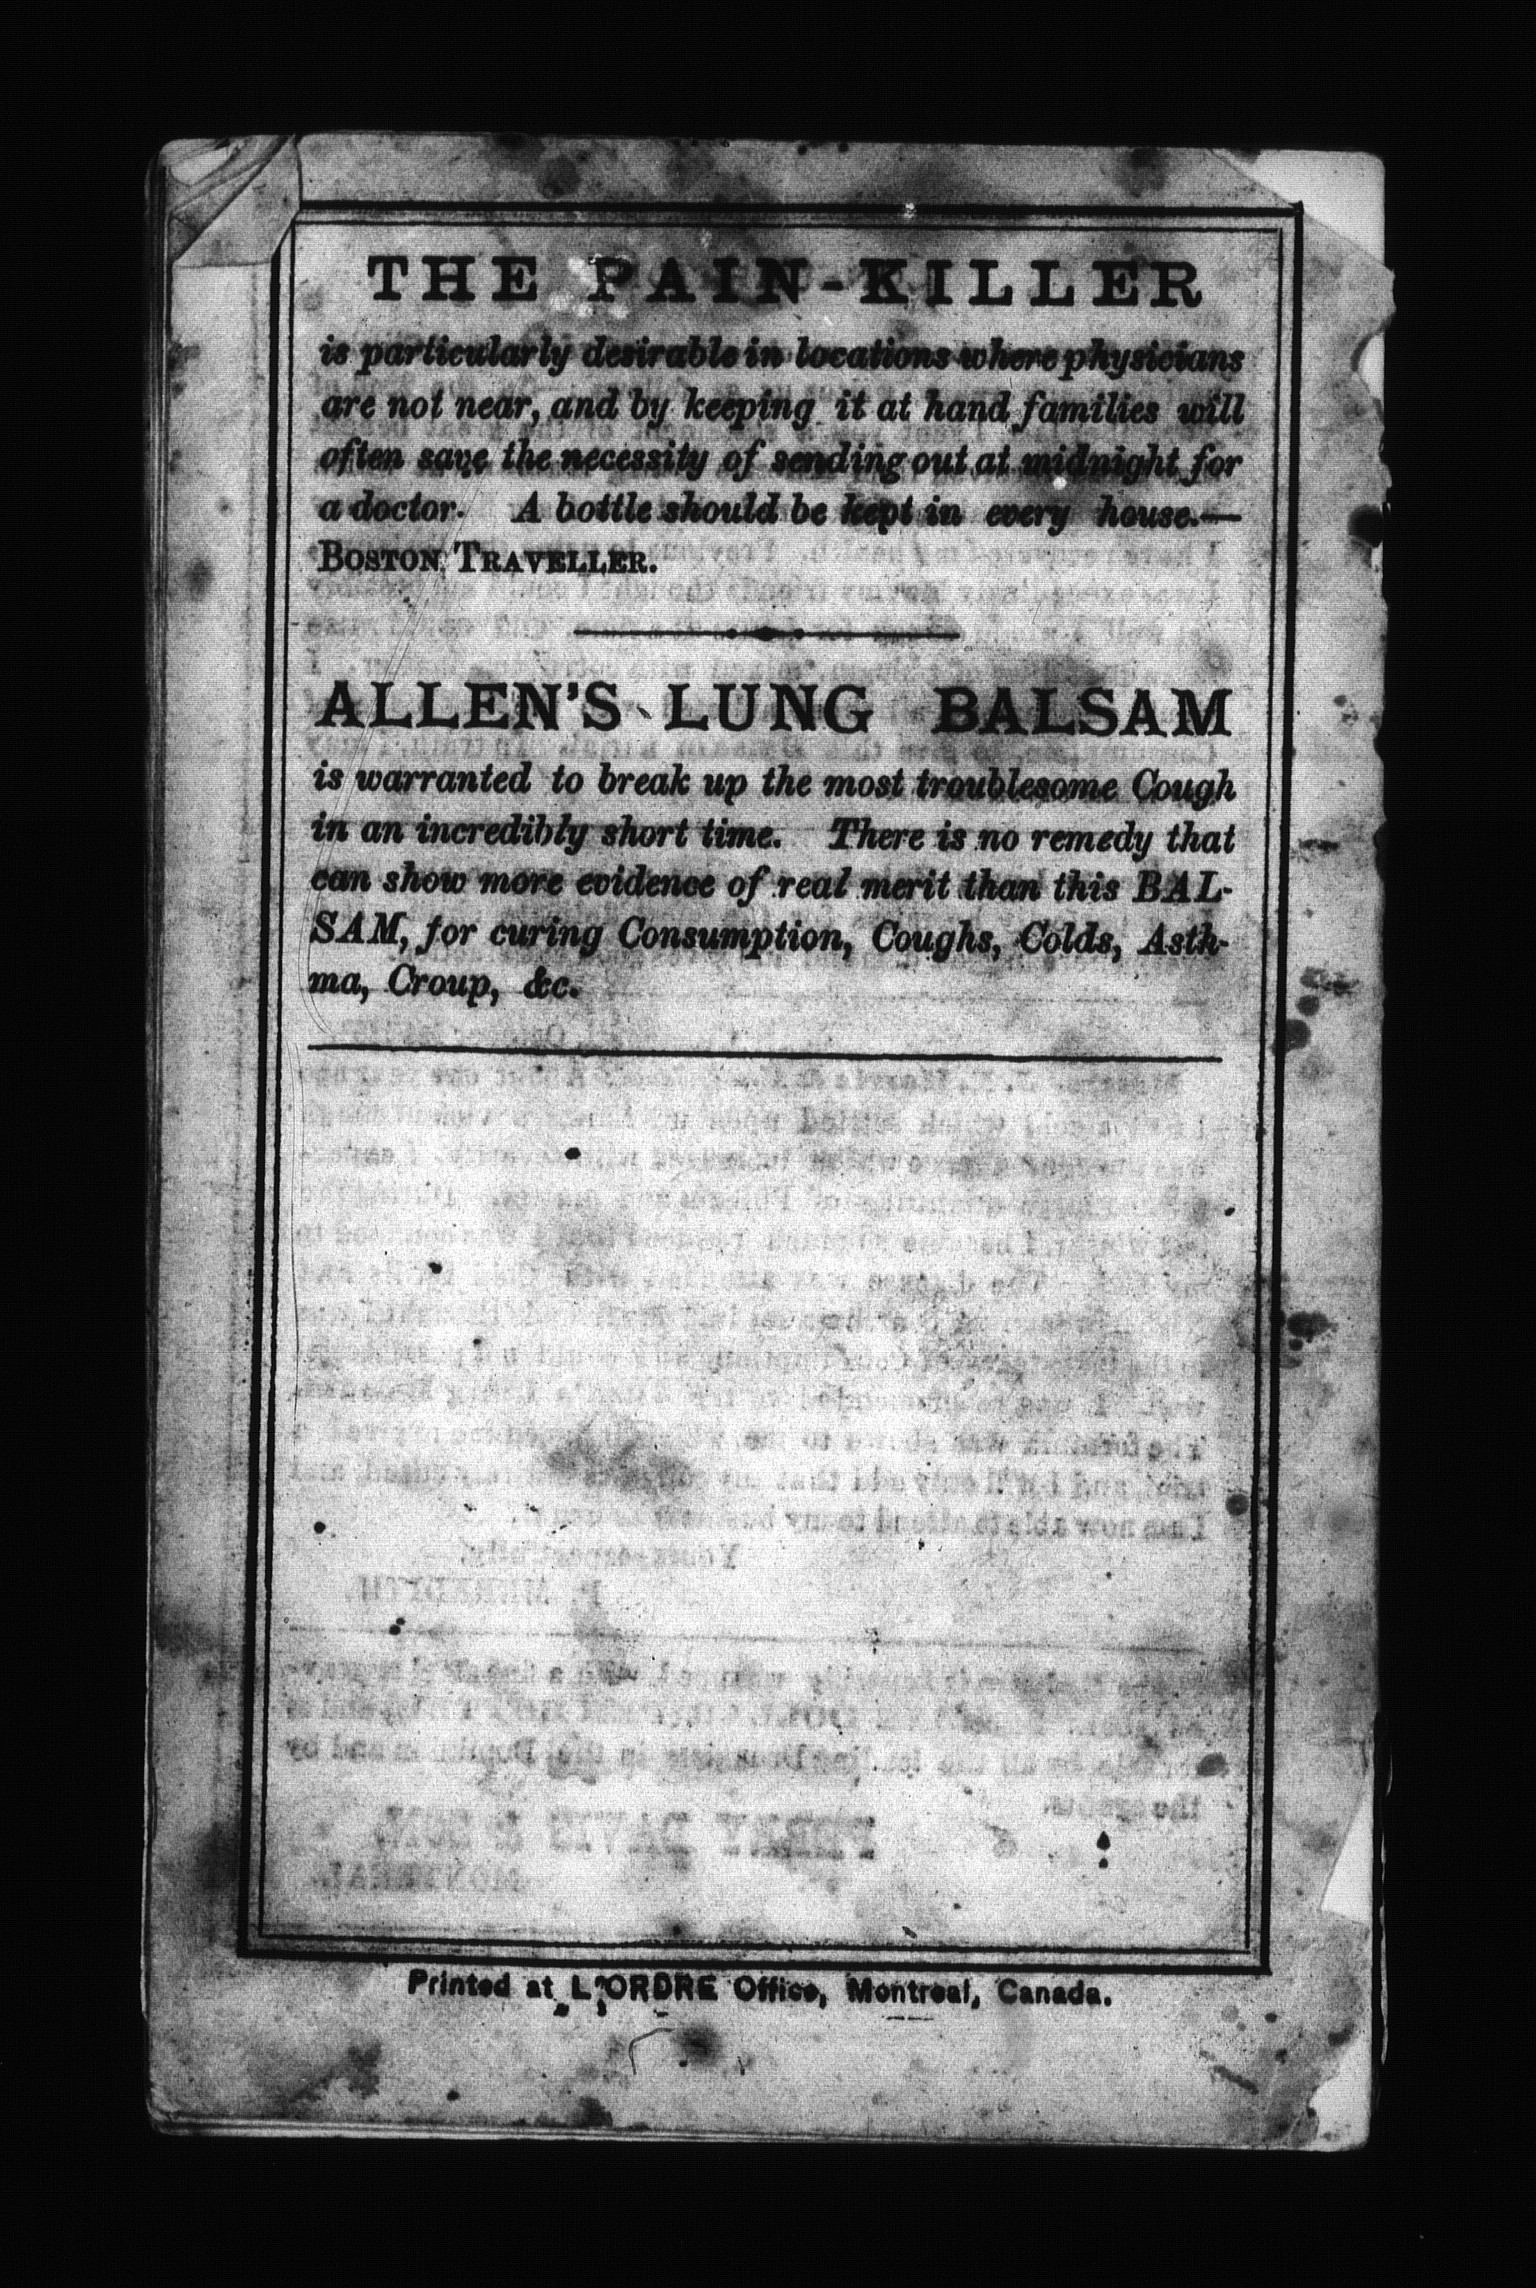 THE PAIN-KILLER
is particularly desirable in locations where physicians
are not near, and by keeping it at hand families will
often save the necessity of sending out at midnight for
a doctor. A bottle should be kept in every house.—
BOSTON TRAVELLER.
ALLEN'S LUNG BALSAM
is warranted to break up the most troublesome Cough
in an incredibly short time. There is no remedy that
can show more evidence of real merit than this BAL-
SAM, for curing Consumption, Coughs, Colds, Asth-
ma, Croup, &c.
Printed at L'ORDRE Office, Montreal, Canada.